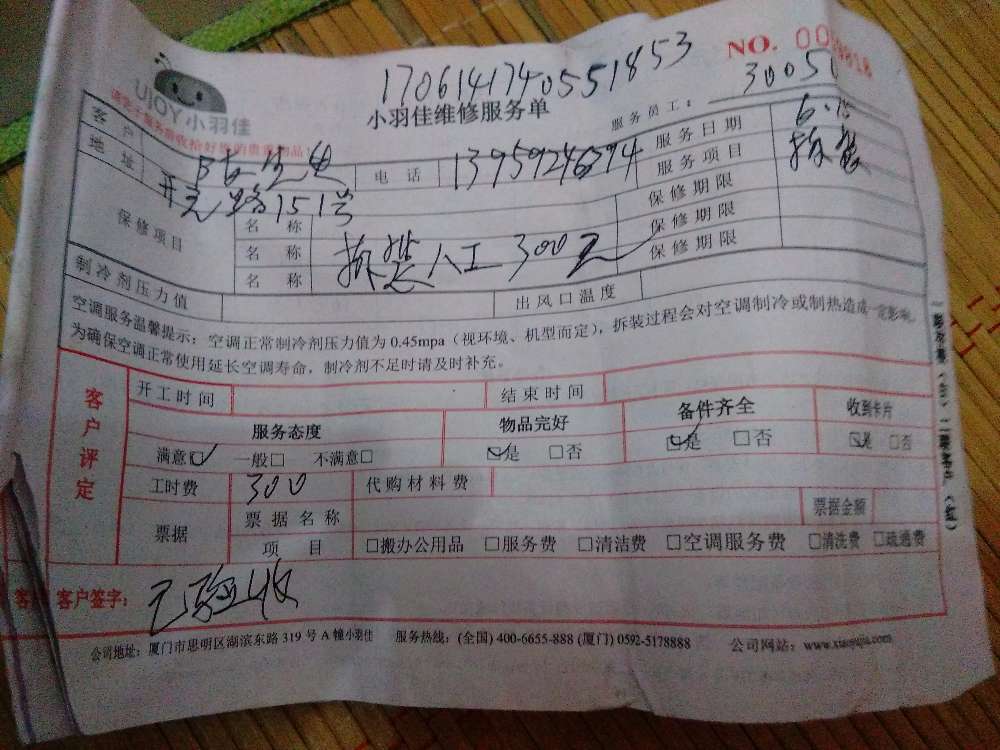 NO.
170614174055185​3
30051
UJOY小羽佳
小羽佳维修服务单
服务员工：
客户
电话
13959246394
服务日期
6.15
地址
开元路151号
服务项目
拆装
保修项目
名称
保修期限
名称
拆装人工300元
保修期限
名称
保修期限
制冷剂压力值
出风口温度
空调服务温馨提示：空调正常制冷剂压力值为0.45mpa（视环境、机型而定），拆装过程会对空调制冷或制热造成一定影响。
为确保空调正常使用延长空调寿命，制冷剂不足时请及时补充。
客户评定
开工时间
结束时间
服务态度
物品完好
备件齐全
收到卡片
满意☑ 一般□ 不满意□
☑是 □否
☑是 □否
☑是 □否
工时费
300
代购材料费
票据
票据名称
票据金额
项目
□搬办公用品 □服务费 □清洁费 □空调服务费 □清洗费 □疏通费
客户签字：
已验收
公司地址：厦门市思明区湖滨东路319号A幢小羽佳 服务热线：(全国) 400-6655-888 (厦门) 0592-5178888 公司网站：www.xiaoyujia.com